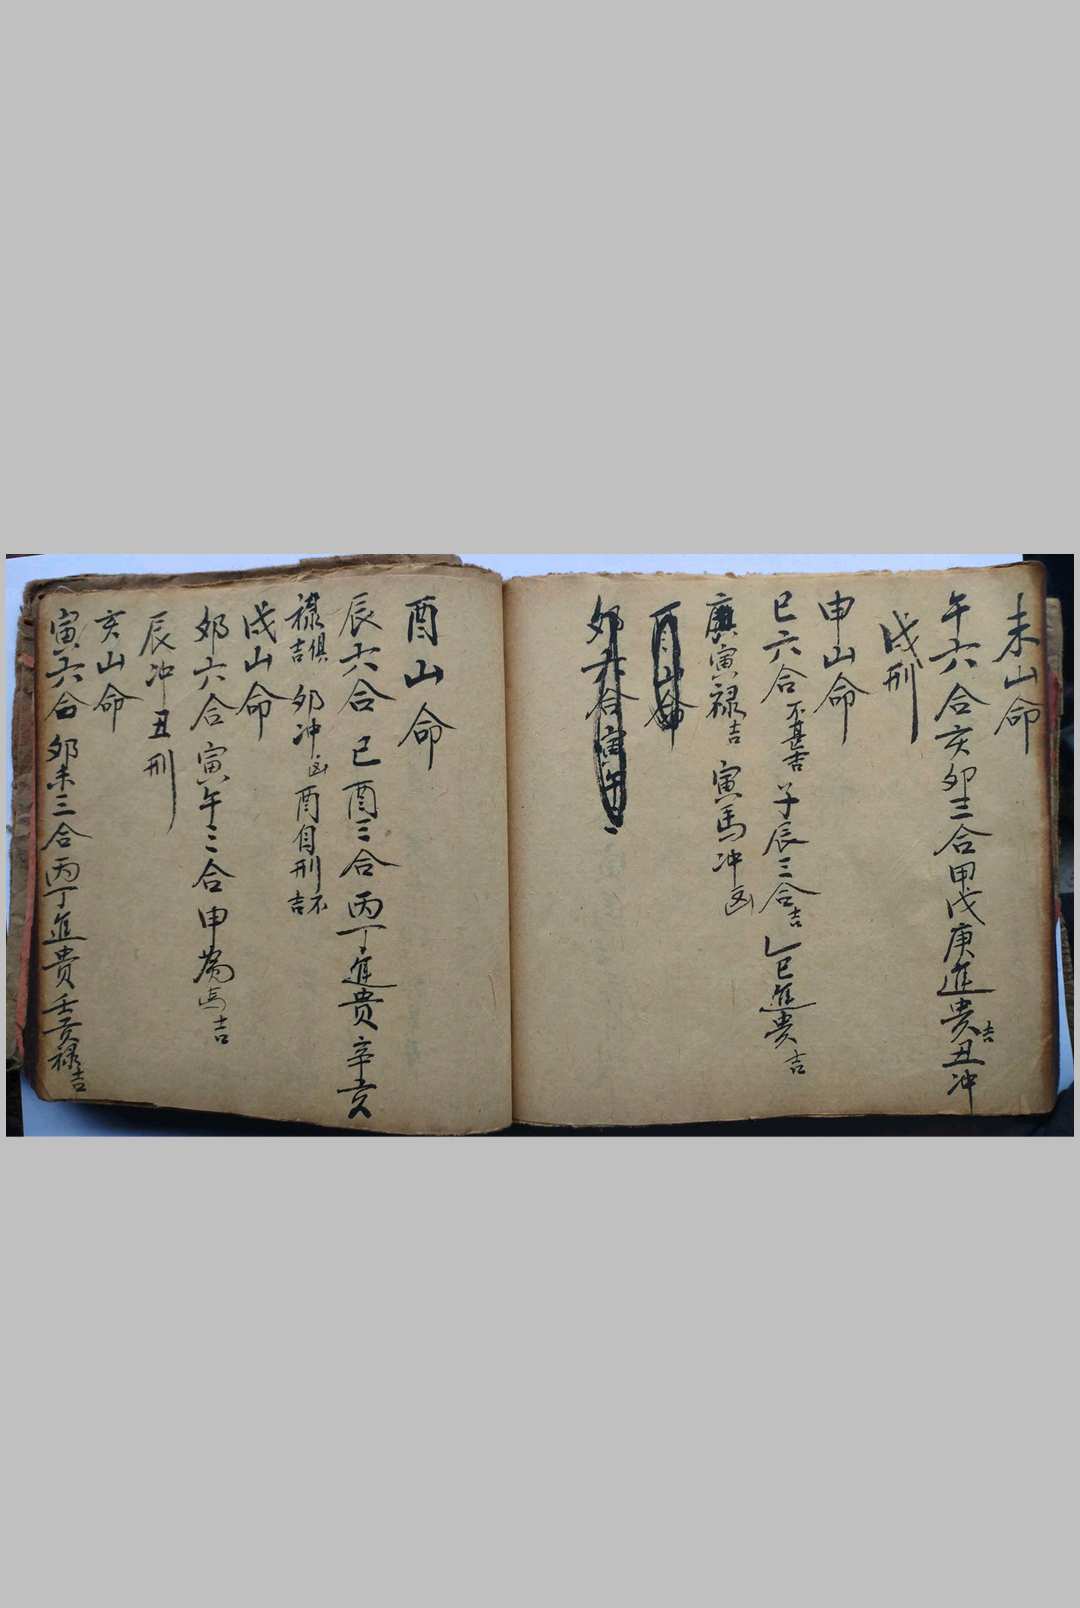 未山命
午六合亥卯三合甲戊庚進貴吉丑冲
戌刑
申山命
巳六合不甚吉子辰三合吉乙巳進貴吉
庚寅禄吉寅馬冲凶
酉山命
卯六合寅午三
酉山命
辰六合巳酉三合丙丁進貴辛亥
禄俱吉卯冲凶酉自刑不吉
戌山命
卯六合寅午三合申為馬吉
辰冲丑刑
亥山命
寅六合卯未三合丙丁進貴壬亥禄吉